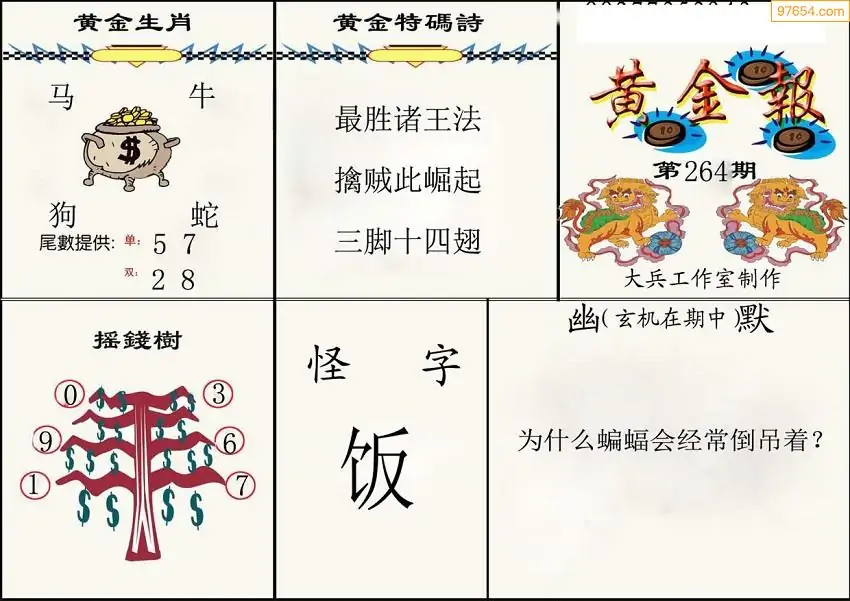 97654.com
黄金生肖
马 牛
$
狗 蛇
尾數提供: 单: 5 7
双: 2 8
黄金特碼詩
最胜诸王法
擒贼此崛起
三脚十四翅
黄金報
第264期
大兵工作室制作
摇錢樹
0 3
9 6
1 7
怪 字
饭
幽(玄机在期中)默
为什么蝙蝠会经常倒吊着?